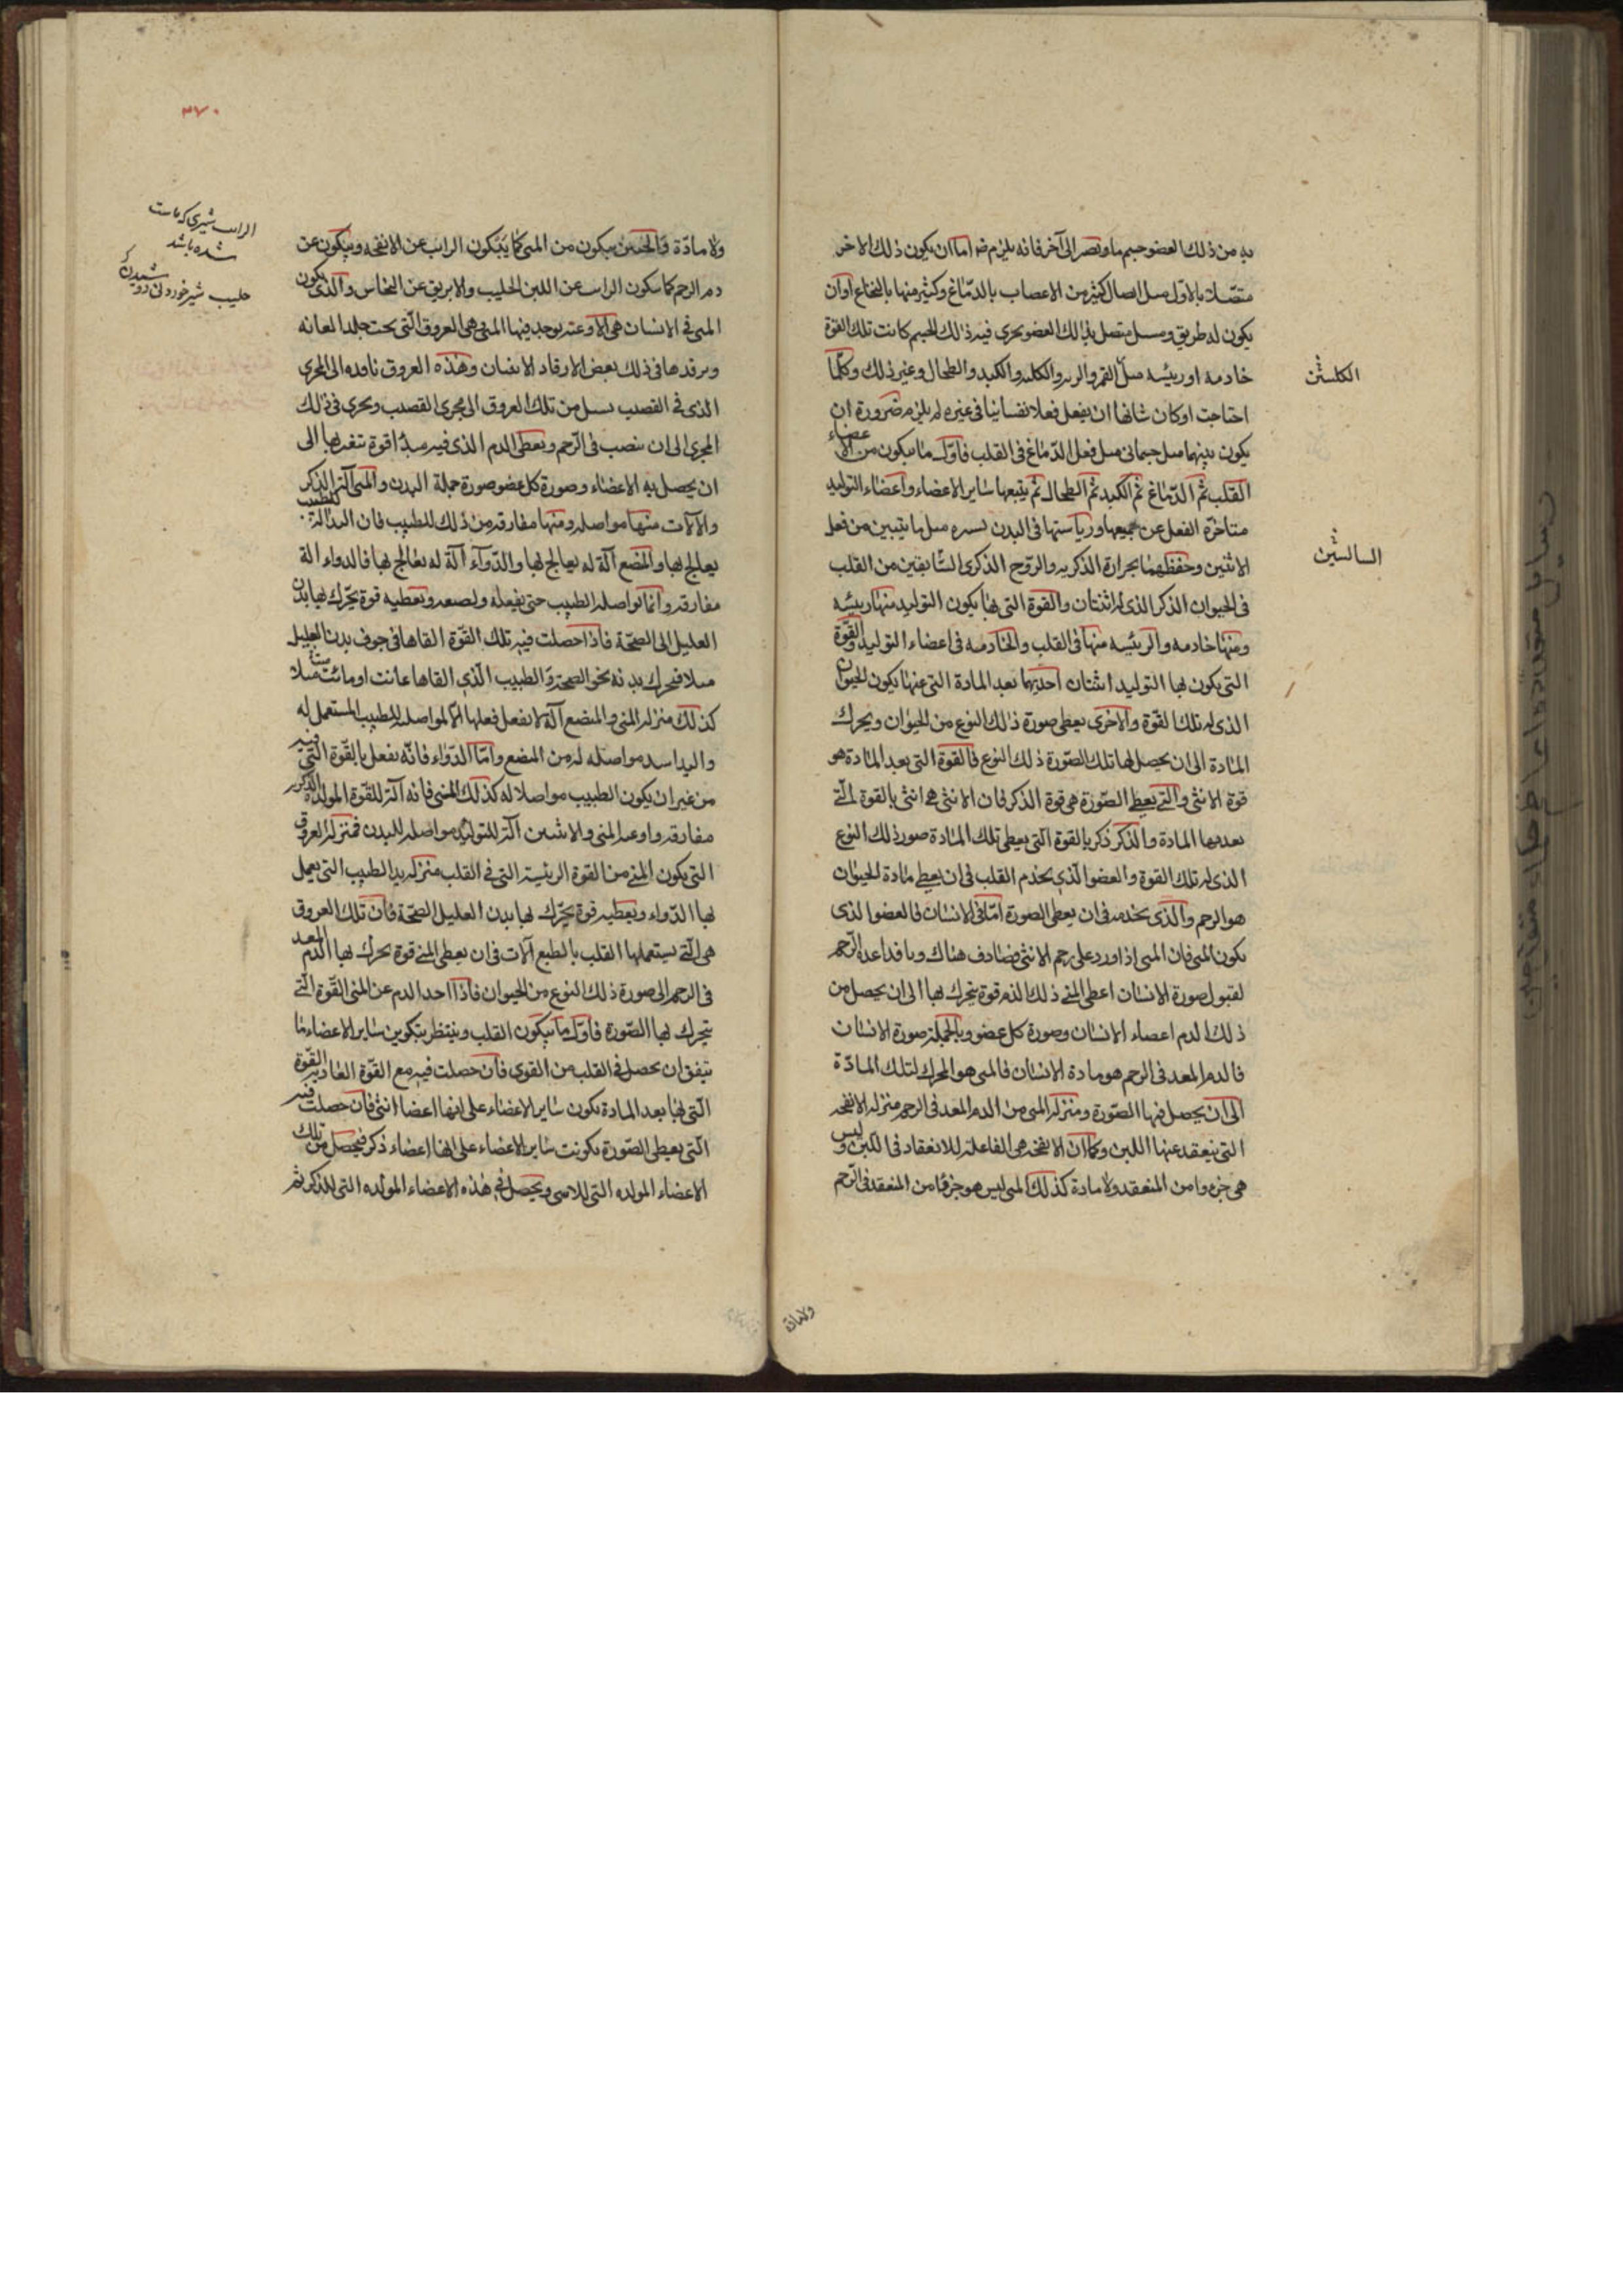 به من ذلك العضو جسم ما ويصير الى آخر فانه يلزم ضر اما ان يكون ذلك الاخر
متصلا بالاول مثل اتصال كثير من الاعصاب بالدماغ وكثير منها بالنخاع او ان
يكون له طريق ومسيل متصل بذلك العضو يجرى فيه ذلك الجسم كانت تلك القوة
خادمة او رئيسه مثل الفم والريه والكليه والكبد والطحال وغير ذلك وكلما
احتاجت او كان شانها ان يفعل فعلا نفسانيا فى غيره لم يلزم ضرورة ان
يكون بينهما مسيل جسمانى مثل فعل الدماغ فى القلب فاول ما يتكون من الاعضاء
القلب ثم الدماغ ثم الكبد ثم الطحال ثم يتبعها ساير الاعضاء واعضاء التوليد
متاخرة الفعل عن جميعها ورياستها فى البدن يسيره مثل ما يتبين من فعل
الانثيين وحفظهما بحرارة الذكريه والروح الذكرى السابقتين من القلب
فى الحيوان الذكر الذى له انثتان والقوة التى بها يكون التوليد منها رئيسه
ومنها خادمه والرئيسه منها فى القلب والخادمه فى اعضاء التوليد والقوة
التى يكون بها التوليد اثنتان احديهما تعد المادة التى عنها يكون الحيوان
الذى له تلك القوة والاخرى يعطى صورة ذلك النوع من الحيوان ويحرك
المادة الى ان يحصل لها تلك الصورة ذلك النوع فالقوة التى يعد المادة هو
قوة الانثى والتى يعطى الصورة هى قوة الذكر فان الانثى هى انثى بالقوة التى
يعد بها المادة والذكر ذكر بالقوة التى يعطى تلك المادة صور ذلك النوع
الذى له تلك القوة والعضو الذى يخدم القلب فى ان يعطى مادة الحيوان
هو الرحم والذى يخدمه فى ان يعطى الصورة اما فى الانسان فالعضو الذى
يكون المنى فان المنى اذا ورد على رحم الانثى فصادف هناك دما قد اعده الرحم
لقبول صورة الانسان اعطى المنى ذلك الدم قوة يتحرك بها الى ان يحصل من
ذلك الدم اعضاء الانسان وصورة كل عضو وبالجملة صورة الانسان
فالدم المعد فى الرحم هو مادة الانسان فالمنى هو المحرك لتلك المادة
الى ان يحصل فيها الصورة ومنزلة المنى من الدم المعد فى الرحم منزله الانفحه
التى ينعقد عنها اللبن وكما ان الانفحه هى الفاعلة للانعقاد فى اللبن وليس
هى جزءا من المنعقد ولا مادة كذلك المنى ليس هو جزءا من المنعقد فى الرحم
الكليتين
السالتين
ولا مادة
٣٧٠
ولا مادة والجنين يتكون من المنى كما يتكون الرائب عن الانفحه ويتكون عن
دم الرحم كما يتكون الرائب عن اللبن الحليب والابريق عن النحاس والذى يكون
المنى فى الانسان هى الاوعية يوجد فيها المنى وهى العروق التى تحت جلد العانه
ويرفدها فى ذلك بعض الارفاد الانثيان وهذه العروق نافذه الى المجرى
الذى فى القضيب يسيل من تلك العروق الى مجرى القضيب ويجرى فى ذلك
المجرى الى ان ينصب فى الرحم ويعطى الدم الذى فيه مبدا قوة يتغير بها الى
ان يحصل به الاعضاء وصورة كل عضو وصورة جملة البدن والمنى آلة الذكر
والآلات منها مواصله ومنها مفارقه من ذلك للطبيب فان اليد آلة للطبيب
يعالج بها والمبضع آلة له يعالج بها والدواء آلة له يعالج بها فالدواء الة
مفارقه وانما يواصله الطبيب حتى يفعله ويصنعه ويعطيه قوة يحرك بها بدن
العليل الى الصحة فاذا حصلت فيه تلك القوة القاها فى جوف بدن العليل
مثلا فيحرك بدنه نحو الصحة والطبيب الذى القاها غائب او مائت مثلا
كذلك منزله المنى والمبضع آلة لا تفعل فعلها الا لمواصله الطبيب المستعمل له
واليد اشد مواصله له من المبضع واما الدواء فانه يفعل بالقوة التى فيه
من غير ان يكون الطبيب مواصلا له كذلك المنى فانه آلة للقوة المولده الذكريه
مفارقه واوعيه المنى والانثيين آلة للتوليد مواصله للبدن فمنزلة العروق
التى يكون المنى من القوة الرئيسة التى فى القلب منزله يد الطبيب التى يعمل
بها الدواء ويعطيه قوة يحرك بها بدن العليل الصحة فان تلك العروق
هى التى يستعملها القلب بالطبع آلات فى ان يعطى المنى قوة يحرك بها الدم المعد
فى الرحم الى صورة ذلك النوع من الحيوان فاذا اخذ الدم عن المنى القوة التى
يتحرك بها الصورة فاول ما يتكون القلب وينتظر بتكوين ساير الاعضاء ما
يتفق ان يحصل فى القلب من القوى فان حصلت فيه مع القوة الغاذيه القوة
التى بها يعد المادة يكون ساير الاعضاء على انها اعضا انثى فان حصلت فيه
التى يعطى الصورة تكونت ساير الاعضاء على انها اعضاء ذكر فيحصل من تلك
الاعضاء المولده التى للانثى ويحصل فى هذه الاعضاء المولده التى للذكر ثم
الراب شيرى كه ماست
شده باشد
حليب شير خوردنى دوشيدن